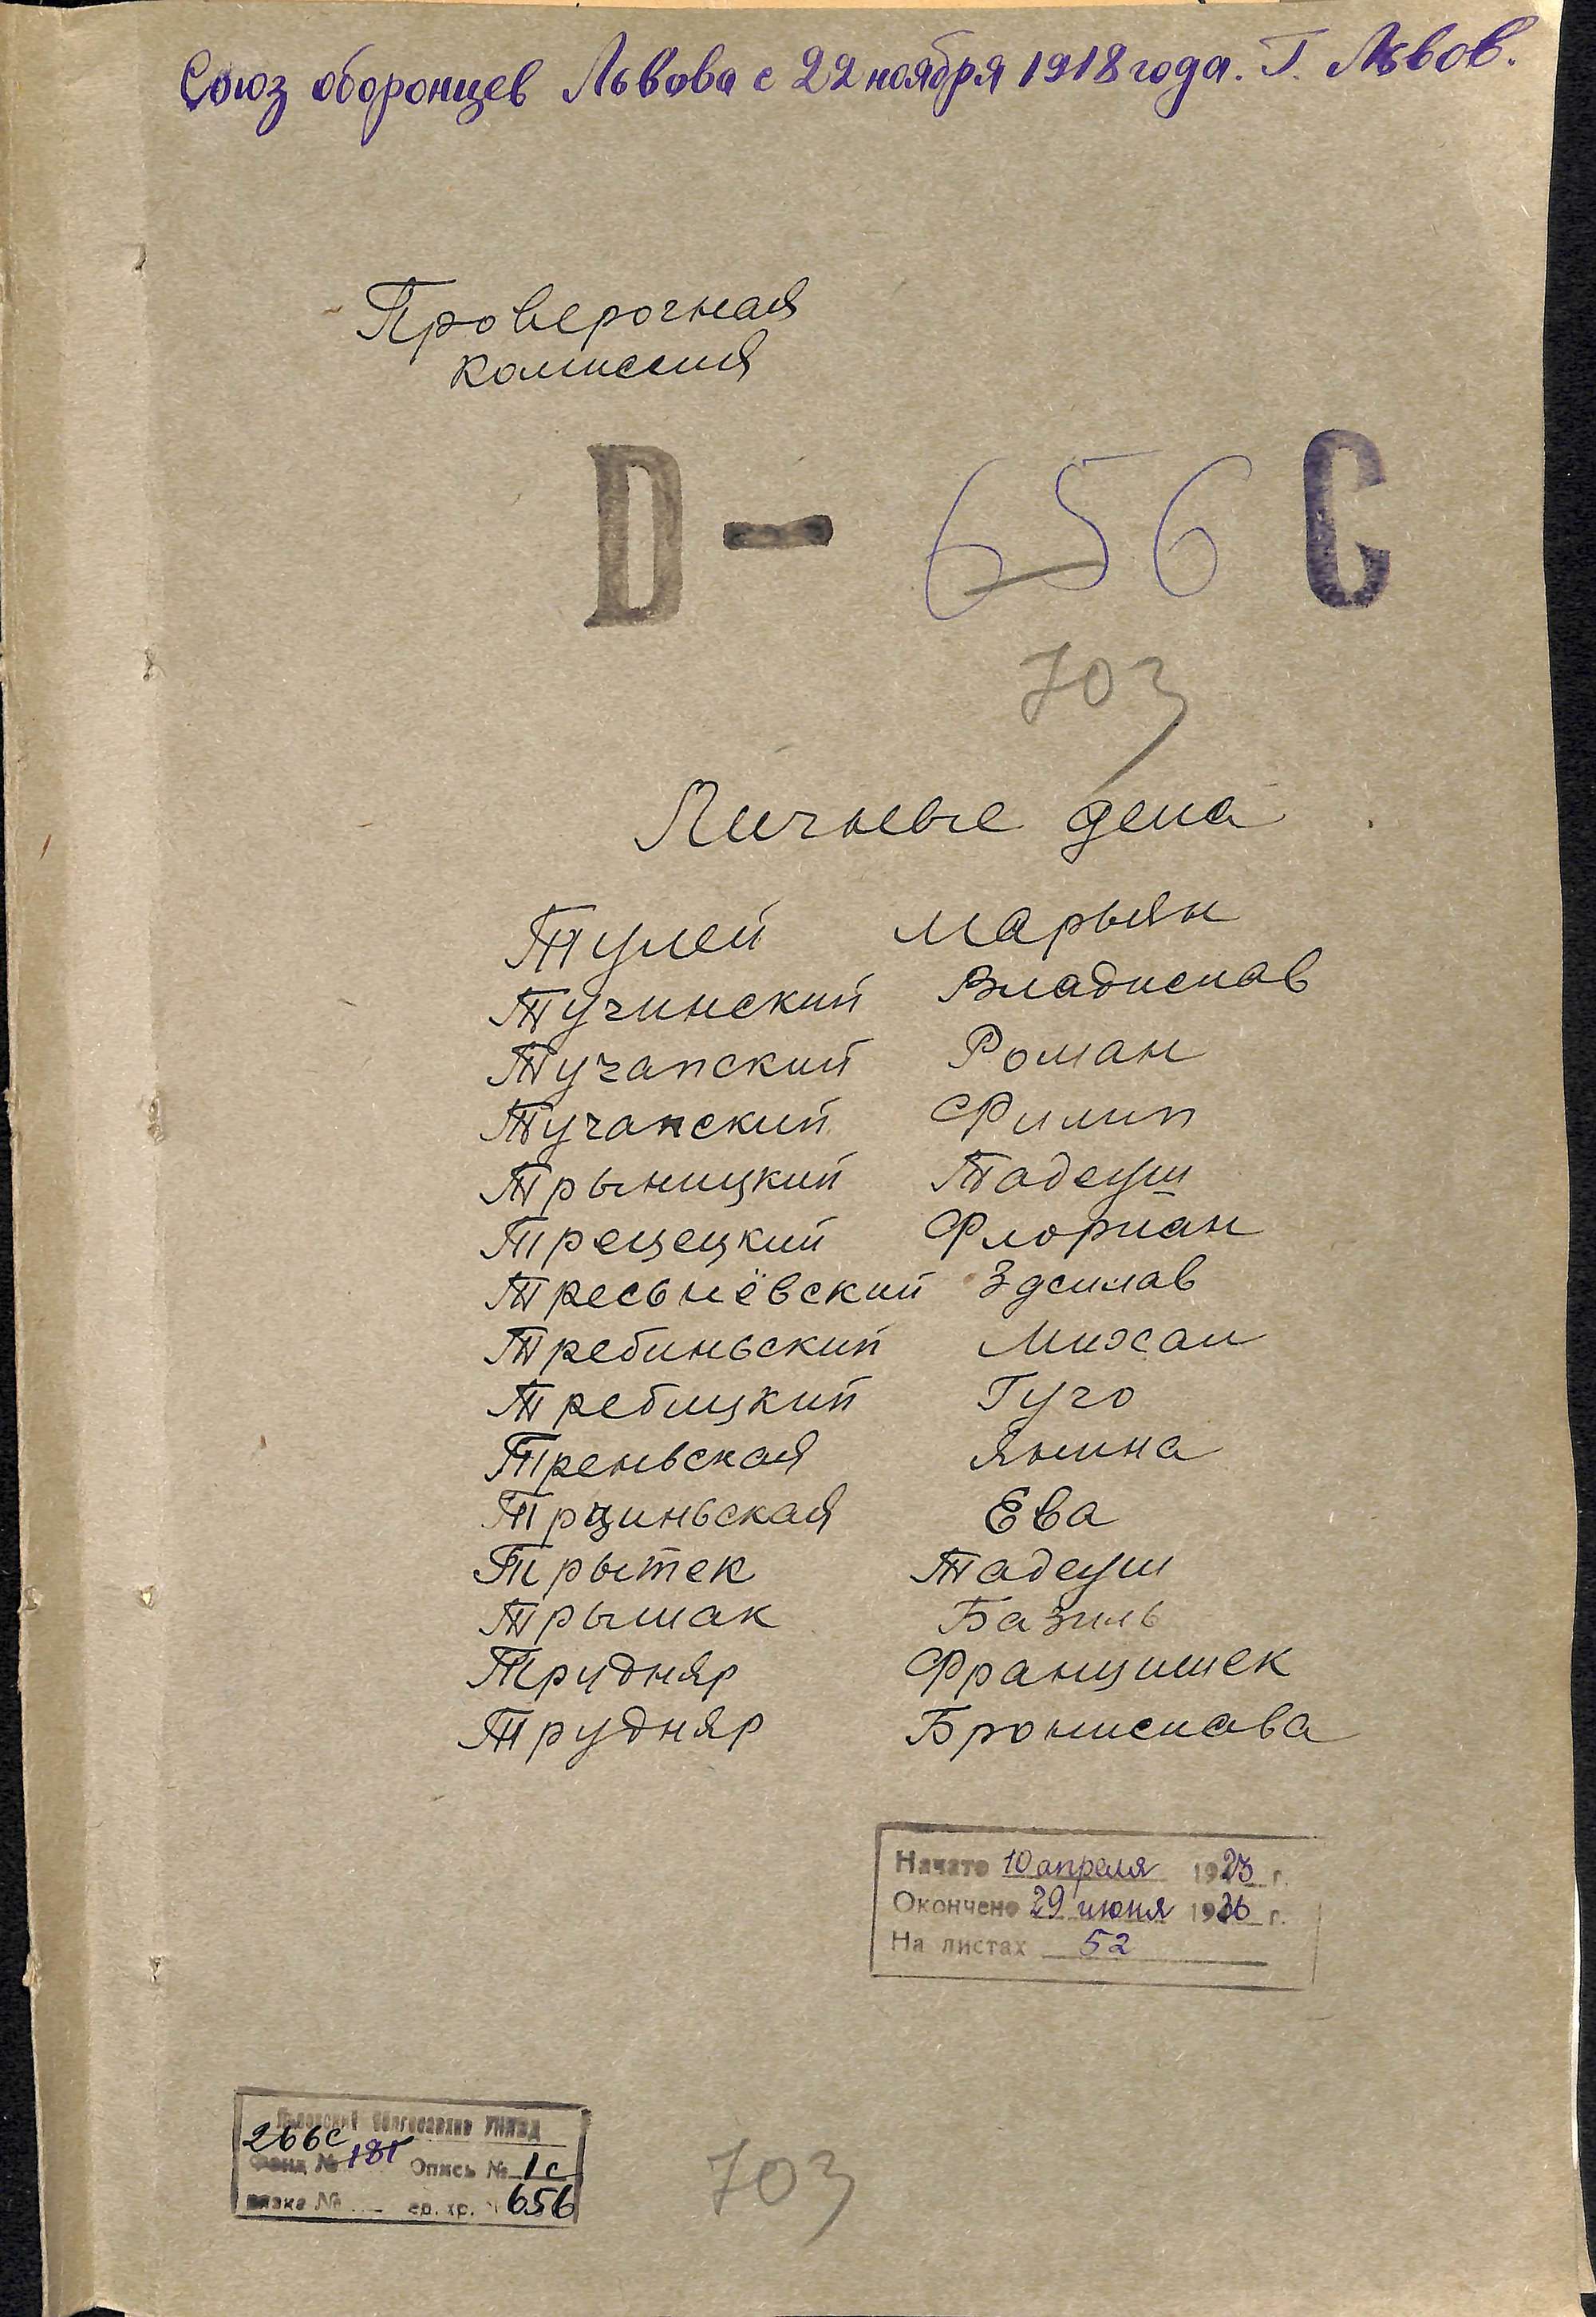 Союз оборонцев Львова с 22 ноября 1918 года. Г. Львов.
Проверочная
комиссия
D – 656 С
703
Личные дела
Тулей Марьян
Тучинский Владислав
Тучапский Роман
Тучапский Филип
Трыницкий Тадеуш
Трещецкий Флориан
Тресьнёвский Здислав
Требиньский Михал
Треблицкий Гуго
Треньская Янина
Трциньская Ева
Трытек Тадеуш
Трышак Базиль
Трудняр Францишек
Трудняр Бронислава
Начато 10 апреля 1923 г.
Окончено 29 июня 1936 г.
На листах 52
Львовский Облгосархив УНКВД
266с
Фонд № 181 Опись № 1с
вязка № ед. хр. 656
703